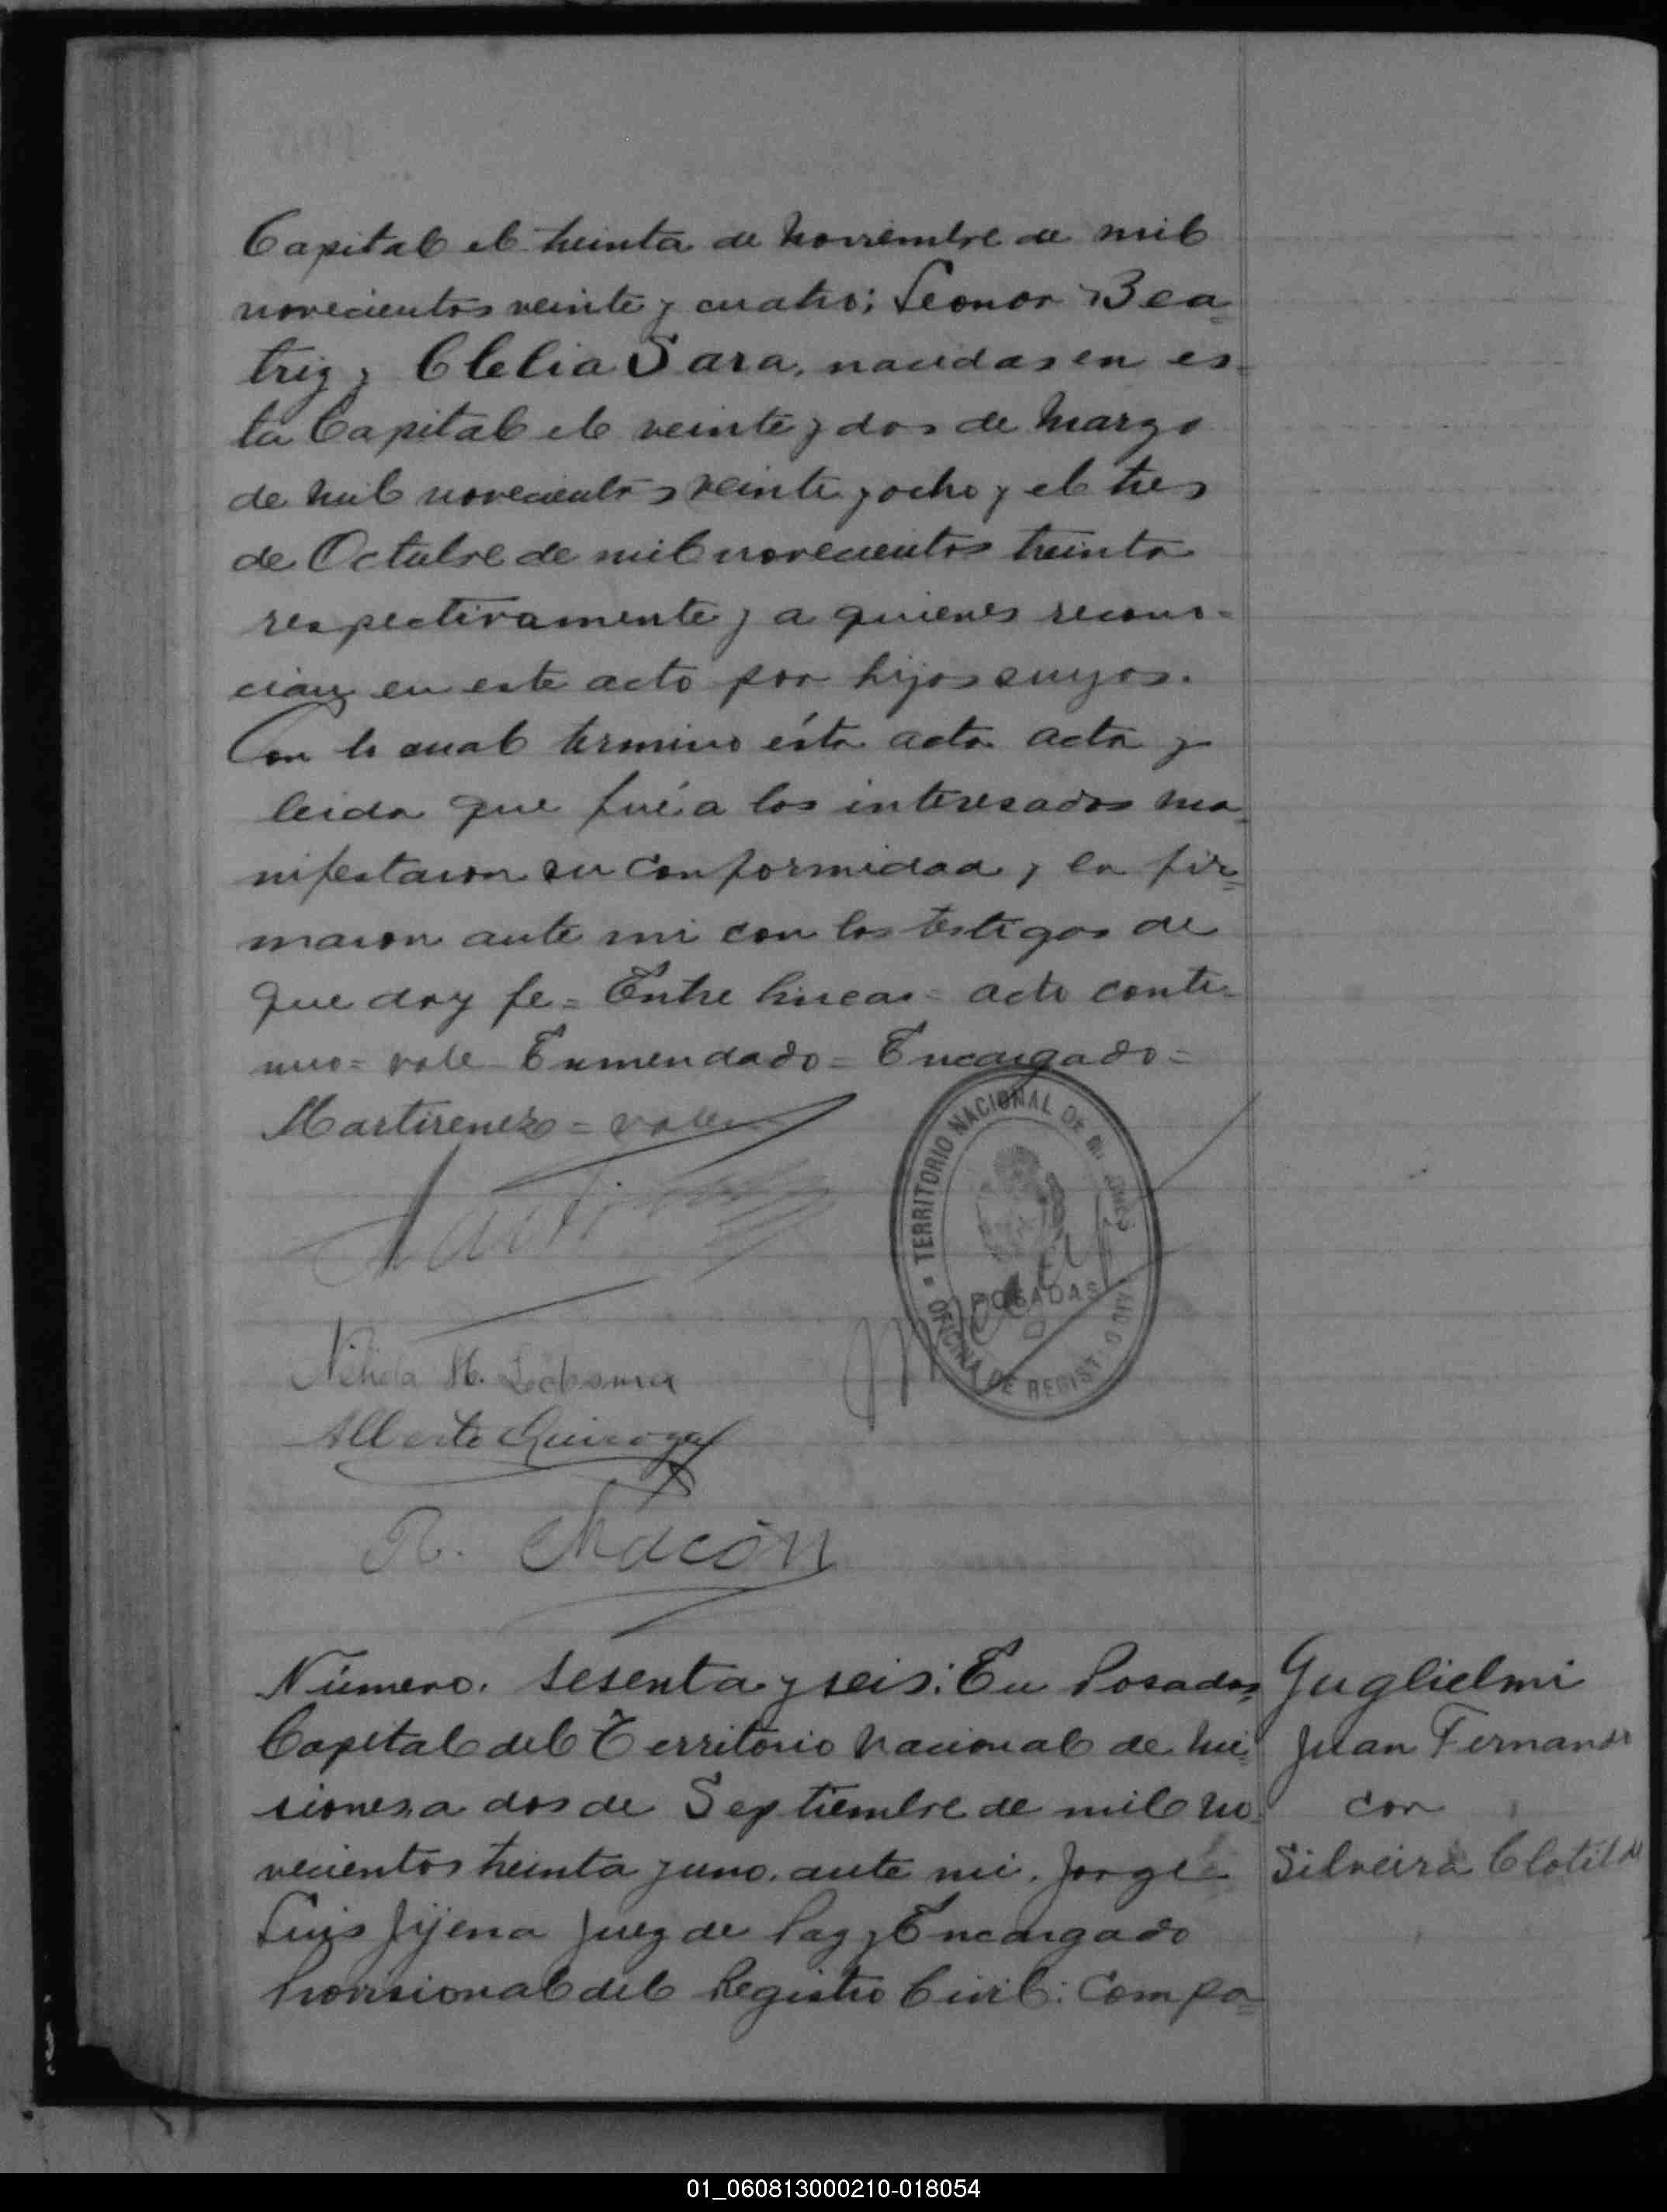 Capital el treinta de Noviembre de mil
novecientos veinte y cuatro; Leonor Bea=
triz y Clelia Sara, nacidas en es=
ta Capital el veinte y dos de Marzo
de mil novecientos veinte y ocho y el tres
de Octubre de mil novecientos treinta
respectivamente y a quienes recono=
cian en este acto por hijos suyos.
Con lo cual termino ésta acta acta y
leida que fué a los interesados ma=
nifestaron su conformidad y la fir=
maron ante mi con los testigos de
que doy fe = Entre lineas = acto conti=
nuo = vale Enmendado = Encargado =
Martirenez = vale
TERRITORIO NACIONAL DE MISIONES
POSADAS
OFICINA DE REGISTRO CIVIL
Nélida H. Ledesma
Alberto Quiroga
R. Chacón
Número. sesenta y seis: En Posadas,
Capital del Territorio Nacional de Mi=
siones, a dos de Septiembre de mil no=
vecientos treinta y uno. ante mi. Jorge
Luis Jijena Juez de Paz y Encargado
Provisional del Registro Civil: Compa=
Guglielmi
Juan Fernando
con
Silveira Clotilde
01_060813000210-018054